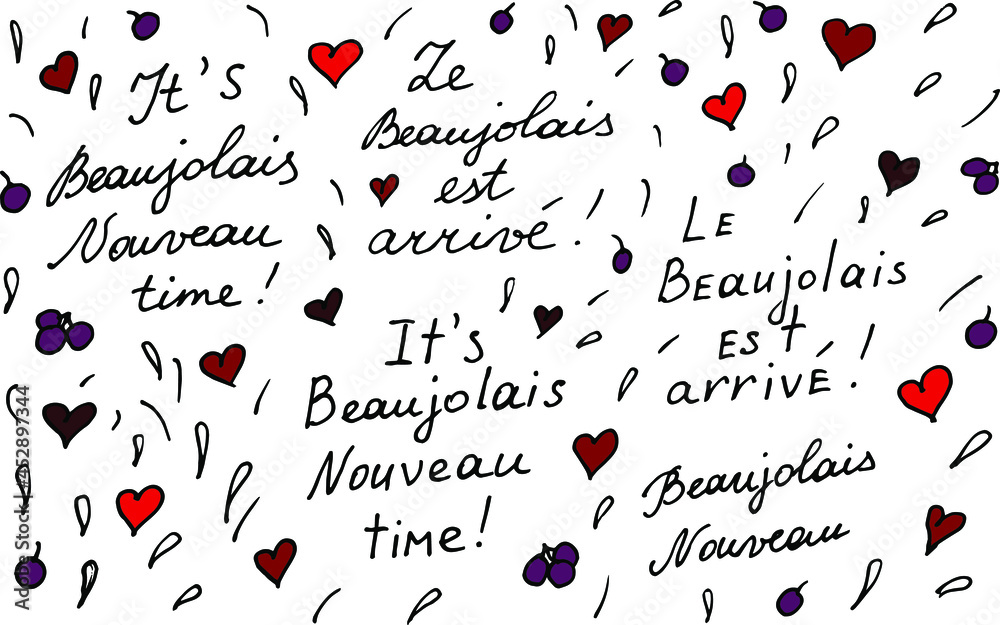 It's
Beaujolais
Nouveau
time!
Le
Beaujolais
est
arrivé!
LE
BEaujolais
Est
arrivÉ!
It's
Beaujolais
Nouveau
time!
Beaujolais
Nouveau
Adobe Stock | #452897344